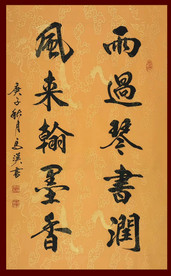 雨過琴書潤
風来翰墨香
庚子秋月